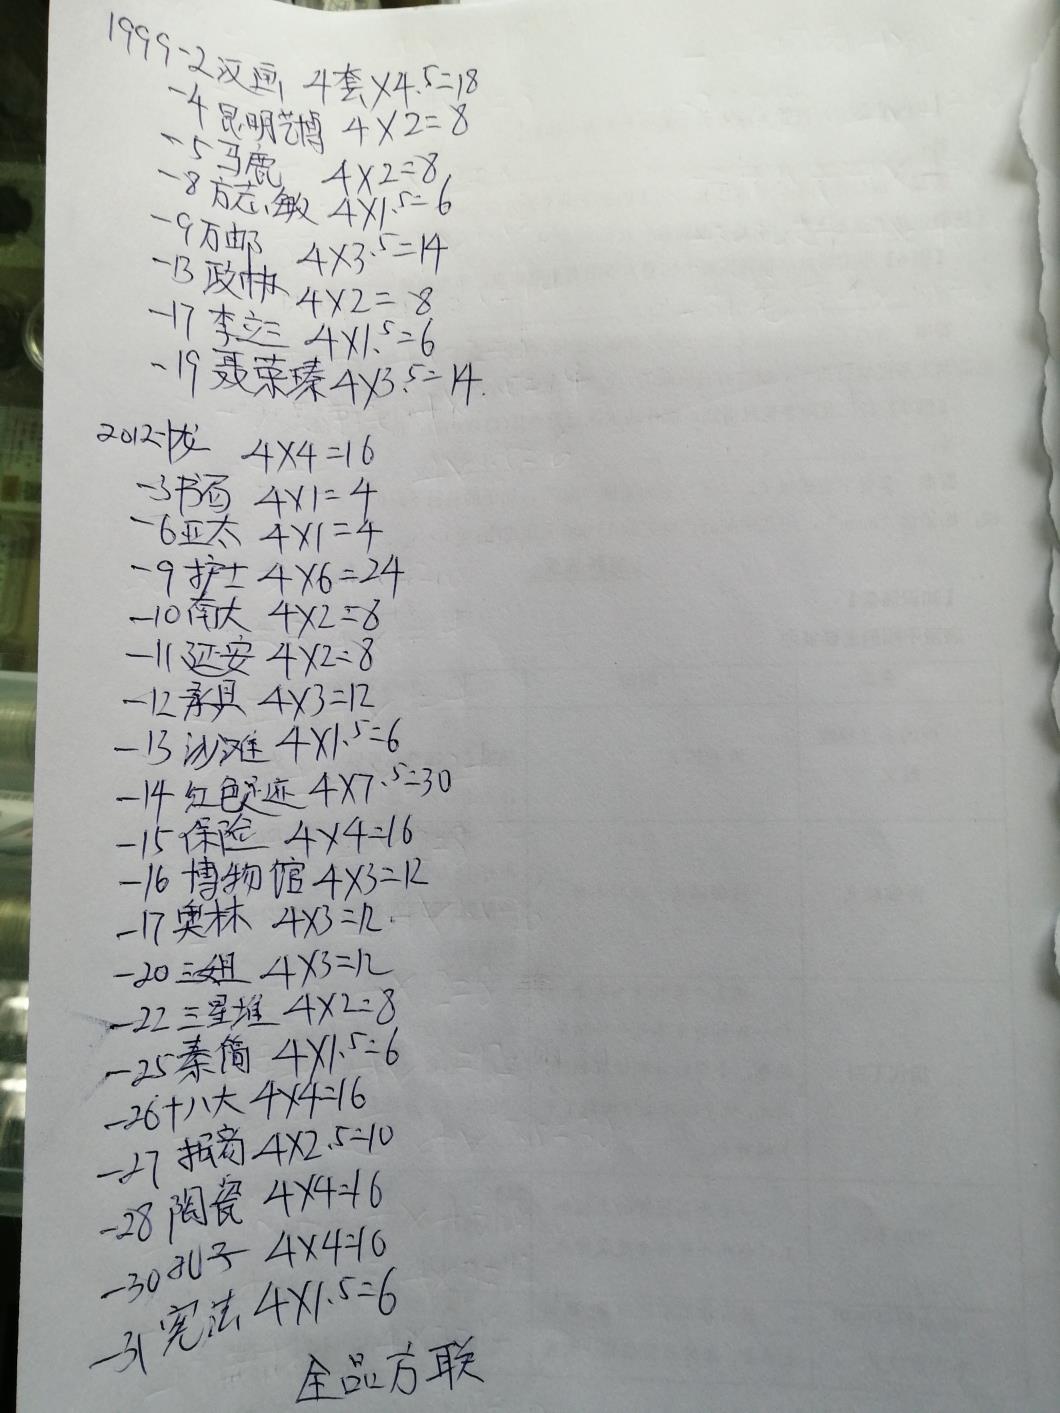 1999-2汉画 4套×4.5=18
-4昆明艺博 4×2=8
-5马鹿 4×2=8
-8方志敏 4×1.5=6
-9万邮 4×3.5=14
-13政协 4×2=8
-17李立三 4×1.5=6
-19聂荣臻4×3.5=14.
2012-1龙 4×4=16
-3书香 4×1=4
-6亚太 4×1=4
-9护士 4×6=24
-10南大 4×2=8
-11延安 4×2=8
-12 4×3=12
-13沙滩 4×1.5=6
-14红色足迹 4×7.5=30
-15保险 4×4=16
-16博物馆 4×3=12
-17奥林 4×3=12.
-20三姐 4×3=12
-22三星堆 4×2=8
-25秦简 4×1.5=6
-26十八大 4×4=16
-27 4×2.5=10
-28陶瓷 4×4=16
-30 4×4=16
-31宪法 4×1.5=6
全品方联